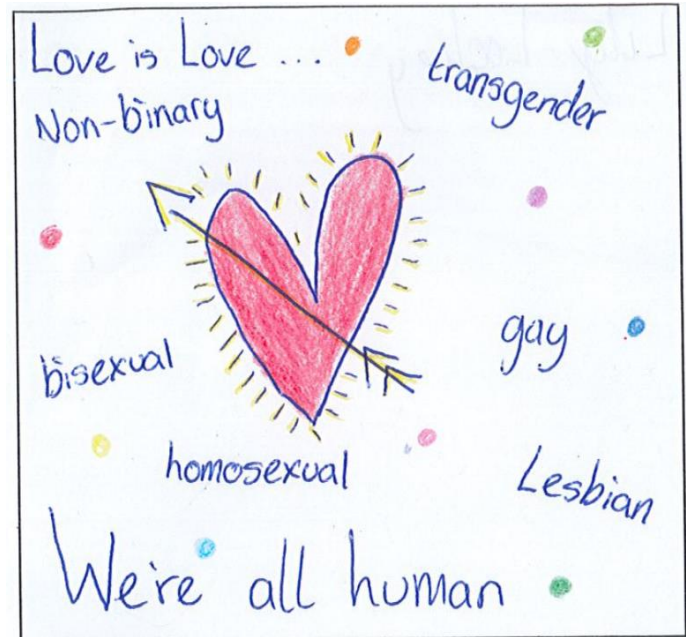 Love is Love ...
transgender
Non-binary
gay
bisexual
homosexual
Lesbian
We're all human